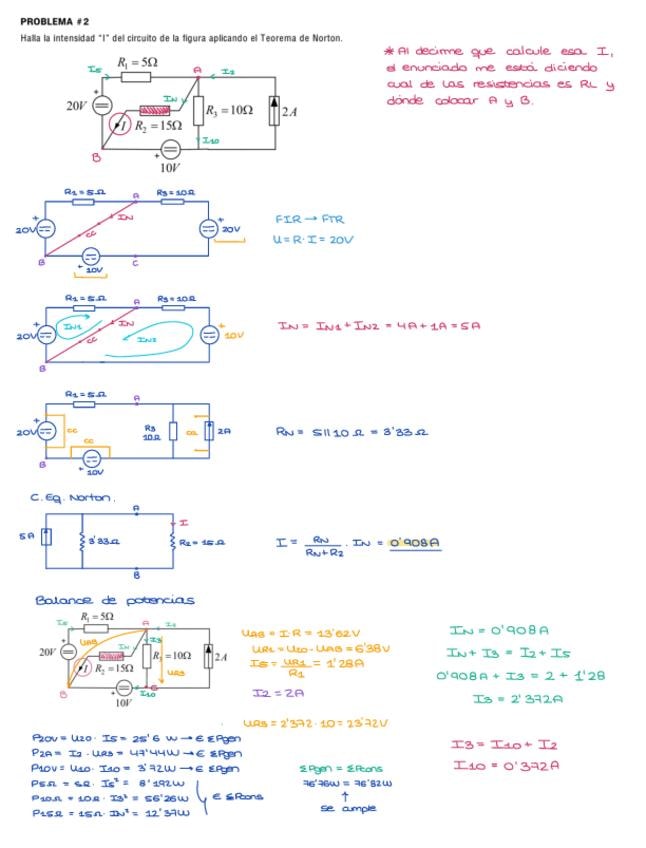 PROBLEMA # 2
Halla la intensidad "I" del circuito de la figura aplicando el Teorema de Norton.
* Al decirme que calcule esa I,
el enunciado me está diciendo
cual de las resistencias es RL y
dónde colocar A y B.
I5 R1 = 5Ω A I2
20V + IN R3 = 10Ω 2 A
I R2 = 15Ω
B + I10
10V
R1 = 5Ω A R3 = 10Ω
20V + IN + 20V
CC
B + 10V C
FIR → FTR
U = R · I = 20V
R1 = 5Ω A R3 = 10Ω
20V + IN1 IN + 10V
CC IN2
B
IN = IN1 + IN2 = 4A + 1A = 5A
R1 = 5Ω A
20V + CC R3 10Ω 2A
CC
B + 10V
RN = 5 || 10 Ω = 3'33Ω
C. Eq. Norton.
A
5A 3'33Ω I R2 = 15Ω
B
I = RN / RN + R2 · IN = 0'908A
Balance de potencias
I5 R1 = 5Ω A I2
20V + UAB IN I3 R3 = 10Ω 2 A
I R2 = 15Ω UR3
B + I10 C
10V
UAB = I · R = 13'62V
UR1 = U20 - UAB = 6'38V
I5 = UR1 / R1 = 1'28A
I2 = 2A
UR3 = 2'372 · 10 = 23'72V
IN = 0'908A
IN + I3 = I2 + I5
0'908A + I3 = 2 + 1'28
I3 = 2'372A
I3 = I10 + I2
I10 = 0'372A
P20V = U20 · I5 = 25'6 W → ∈ ΣPgen
P2A = I2 · UR3 = 47'44W → ∈ ΣPgen
P10V = U10 · I10 = 3'72W → ∈ ΣPgen
P5Ω = 5Ω · I5² = 8'192W
P10Ω = 10Ω · I3² = 56'26W ∈ ΣPcons
P15Ω = 15Ω · IN² = 12'37W
ΣPgen = ΣPcons
76'76W = 76'82W
↑
se cumple